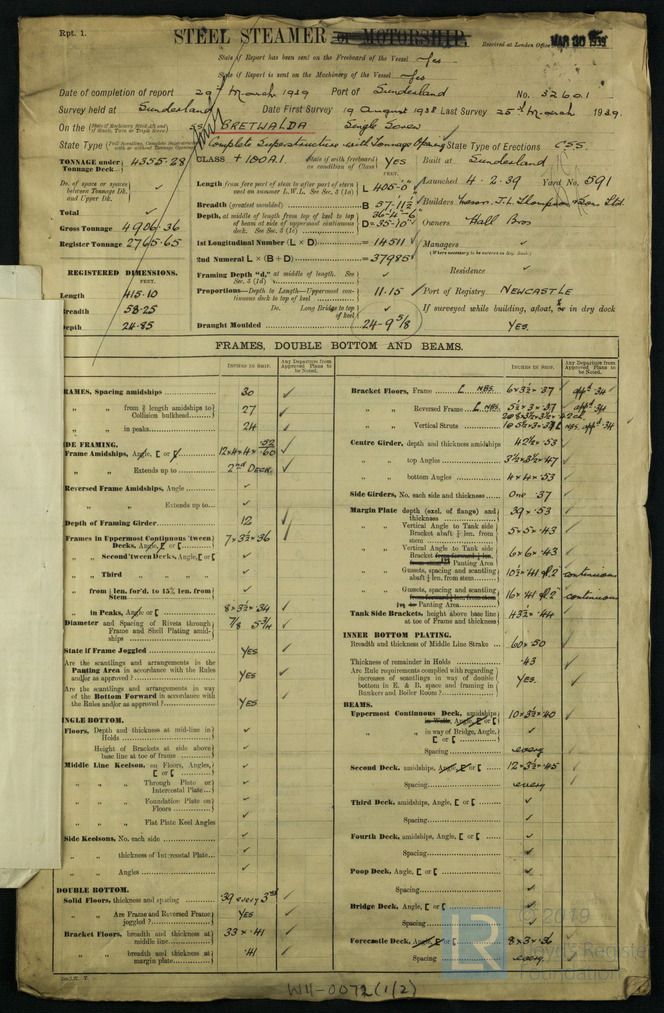 Rpt. 1.
STEEL STEAMER or MOTORSHIP.
Received at London Office MAR 30 1939
State if Report has been sent on the Freeboard of the Vessel Yes
State if Report is sent on the Machinery of the Vessel Yes
Date of completion of report 29th March 1939 Port of Sunderland No. 32601
Survey held at Sunderland Date First Survey 19 August 1938 Last Survey 25th March 1939
On the SS BRETWALDA Single Screw
State Type Complete Superstructure with Tonnage Opening State Type of Erections CSS.
TONNAGE under Tonnage Deck 4355.28
Do. of space or spaces between Tonnage Dk. and Upper Dk. ✓
Total ✓
Gross Tonnage 4906.36
Register Tonnage 2765.65
REGISTERED DIMENSIONS.
FEET.
Length 415.10
Breadth 58.25
Depth 24.85
CLASS +100A1. State if with freeboard as condition of Class YES
Length from fore part of stem to after part of stern post on summer L.W.L. See Sec. 3 (1a) L 405'-0"
Breadth (greatest moulded) B 57-11½
Depth, at middle of length from top of keel to top of beam at side of uppermost continuous deck. See Sec. 3 (1c) D=35-10"
1st Longitudinal Number (L × D) = 14511
2nd Numeral L × (B + D) = 37985
Framing Depth "d," at middle of length. See Sec. 3 (1d) ✓
Proportions—Depth to Length—Uppermost continuous deck to top of keel 11.15
Do. Long Bridge to top of keel ✓
Draught Moulded 24-9⅝
Built at Sunderland
Launched 4.2.39 Yard No. 591
Builders Messrs. J.L. Thompson & Sons Ltd.
Owners Hall Bros
Managers ✓
(Where necessary to be entered on Reg. Book)
Residence ✓
Port of Registry. NEWCASTLE
If surveyed while building, afloat, or in dry dock
YES.
FRAMES, DOUBLE BOTTOM AND BEAMS.
INCHES IN SHIP. Any Departure from Approved Plans to be Noted.
RAMES, Spacing amidships 30 ✓
" " from ⅗ length amidships to Collision bulkhead 27 ✓
" " in peaks 24 ✓
DE FRAMING.
Frame Amidships, Angle, [ or [ 12×4×4×.52/.60 ✓
" " Extends up to 2nd DECK. ✓
Reversed Frame Amidships, Angle ✓
" " Extends up to ✓
Depth of Framing Girder 12 ✓
Frames in Uppermost Continuous 'tween Decks, Angle, [ or [ 7×3½×.36 ✓
" " Second 'tween Decks, Angle, [ or [ ✓
" " Third " " " ✓
" " from ⅗ len. for'd. to 15% len. from Stem ✓
" " in Peaks, Angle or [ 8×3½×.34 ✓
Diameter and Spacing of Rivets through Frame and Shell Plating amidships ⅞ 5¾ ✓
State if Frame Joggled YES ✓
Are the scantlings and arrangements in the Panting Area in accordance with the Rules and/or as approved? YES ✓
Are the scantlings and arrangements in way of the Bottom Forward in accordance with the Rules and/or as approved? YES ✓
INGLE BOTTOM.
Floors, Depth and thickness at mid-line in Holds ✓
Height of Brackets at side above base line at toe of frame ✓
Middle Line Keelson, on Floors, Angles, [ or [ ✓
" " " Through Plate or Intercostal Plate ✓
" " " Foundation Plate on Floors ✓
" " " Flat Plate Keel Angles ✓
Side Keelsons, No. each side ✓
" " thickness of Intercostal Plate ✓
" " Angles ✓
DOUBLE BOTTOM.
Solid Floors, thickness and spacing .39 every 3rd ✓
" " Are Frame and Reversed Frame joggled? YES ✓
Bracket Floors, breadth and thickness at middle line 33 × .41 ✓
" " breadth and thickness at margin plate .41 ✓
INCHES IN SHIP. Any Departure from Approved Plans to be Noted.
Bracket Floors, Frame 6×3½×.37 appd .34
" " Reversed Frame 5½×3×.37 appd .34
" " Vertical Struts
Centre Girder, depth and thickness amidships 42½×.53 ✓
" " top Angles 3½×3½×.47 ✓
" " bottom Angles 4×4×.53 ✓
Side Girders, No. each side and thickness One .37 ✓
Margin Plate depth (excl. of flange) and thickness 39×.53 ✓
" " Vertical Angle to Tank side Bracket abaft ¼ len. from stem 5×5×.43 ✓
" " Vertical Angle to Tank side Bracket from forward ¼ len. from stem to Panting Area 6×6×.43 ✓
" " Gussets, spacing and scantling abaft ¼ len. from stem 10½×.41 continuous
" " Gussets, spacing and scantling from forward ¼ len. from stem to Panting Area 16×.41 continuous
Tank Side Brackets, height above base line at toe of Frame and thickness 43½×.44 ✓
INNER BOTTOM PLATING.
Breadth and thickness of Middle Line Strake 60×.50 ✓
Thickness of remainder in Holds .43
Are Rule requirements complied with regarding increases of scantlings in way of double bottom in E. & B. space and framing in Bunkers and Boiler Room? YES. ✓
BEAMS.
Uppermost Continuous Deck, amidships in Wells, Angle, [ or [ 10×3½×.40 ✓
" " in way of Bridge, Angle, [ or [ ✓
Spacing every
Second Deck, amidships, Angle, [ or [ 12×3½×.45 ✓
Spacing every ✓
Third Deck, amidships, Angle, [ or [ ✓
Spacing ✓
Fourth Deck, amidships, Angle, [ or [ ✓
Spacing ✓
Poop Deck, Angle, [ or [ ✓
Spacing ✓
Bridge Deck, Angle, [ or [ ✓
Spacing ✓
Forecastle Deck, Angle, [ or [ 8×3×.36 ✓
Spacing every ✓
© 2019
LR Lloyd's Register
Foundation
W11-0072(1/2)